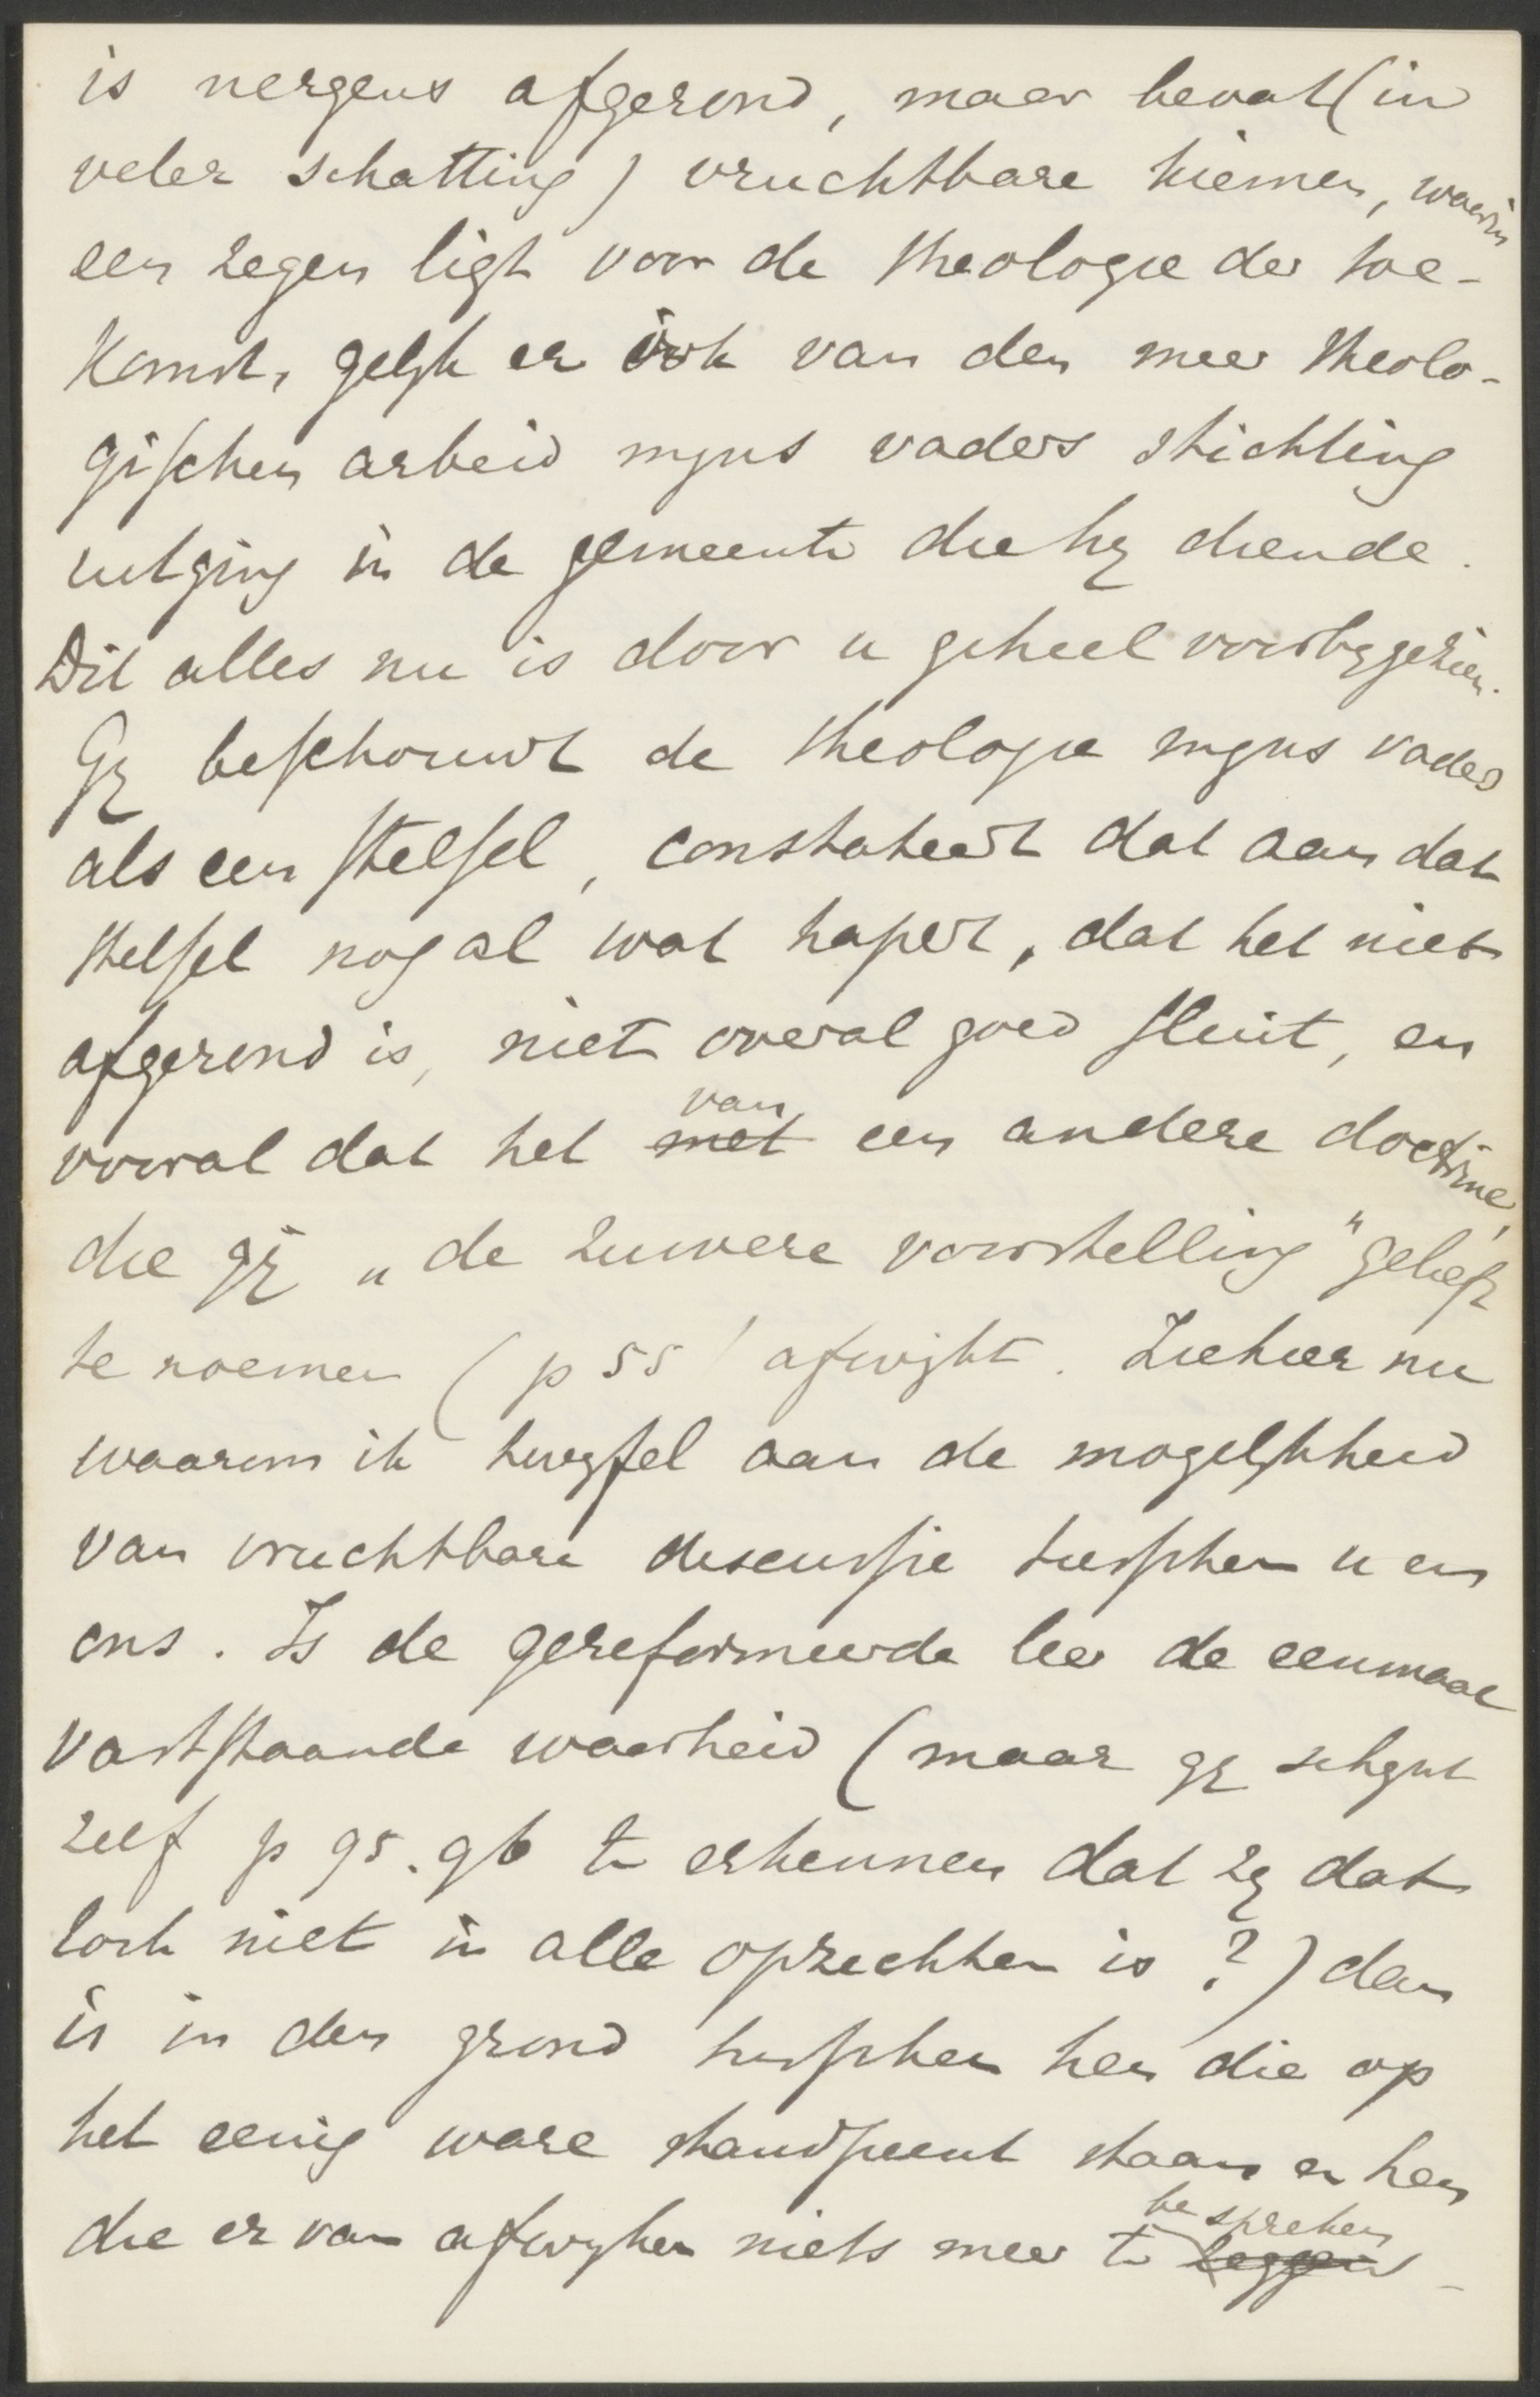 is nergens afgerond, maar bevat (in
veler schatting) vruchtbare kiemen, waarin
een zegen ligt voor de theologie der toe-
komst, gelijk er ook van den meer theolo-
gischen arbeid mijns vaders stichting
uitging in de gemeente die hij diende.
Dit alles nu is door u geheel voorbijgezien.
Gij beschouwt de theologie mijns vaders
als een stelsel, constateert dat aan dat
stelsel nog al wat hapert, dat het niet
afgerond is, niet overal goed sluit, en
vooral dat het met van een andere doctrine,
die gij „de zuivere voorstelling" gelieft
te noemen (p 55) afwijkt. Ziehier nu
waarom ik twijfel aan de mogelijkheid
van vruchtbare discussie tusschen u en
ons. Is de gereformeerde leer de eenmaal
vaststaande waarheid (maar gij schijnt
zelf p 95.96 te erkennen dat zij dat
toch niet in alle opzichten is?) dan
is in den grond tusschen hen die op
het eenig ware standpunt staan en hen
die er van afwijken niets meer te zeggen bespreken -